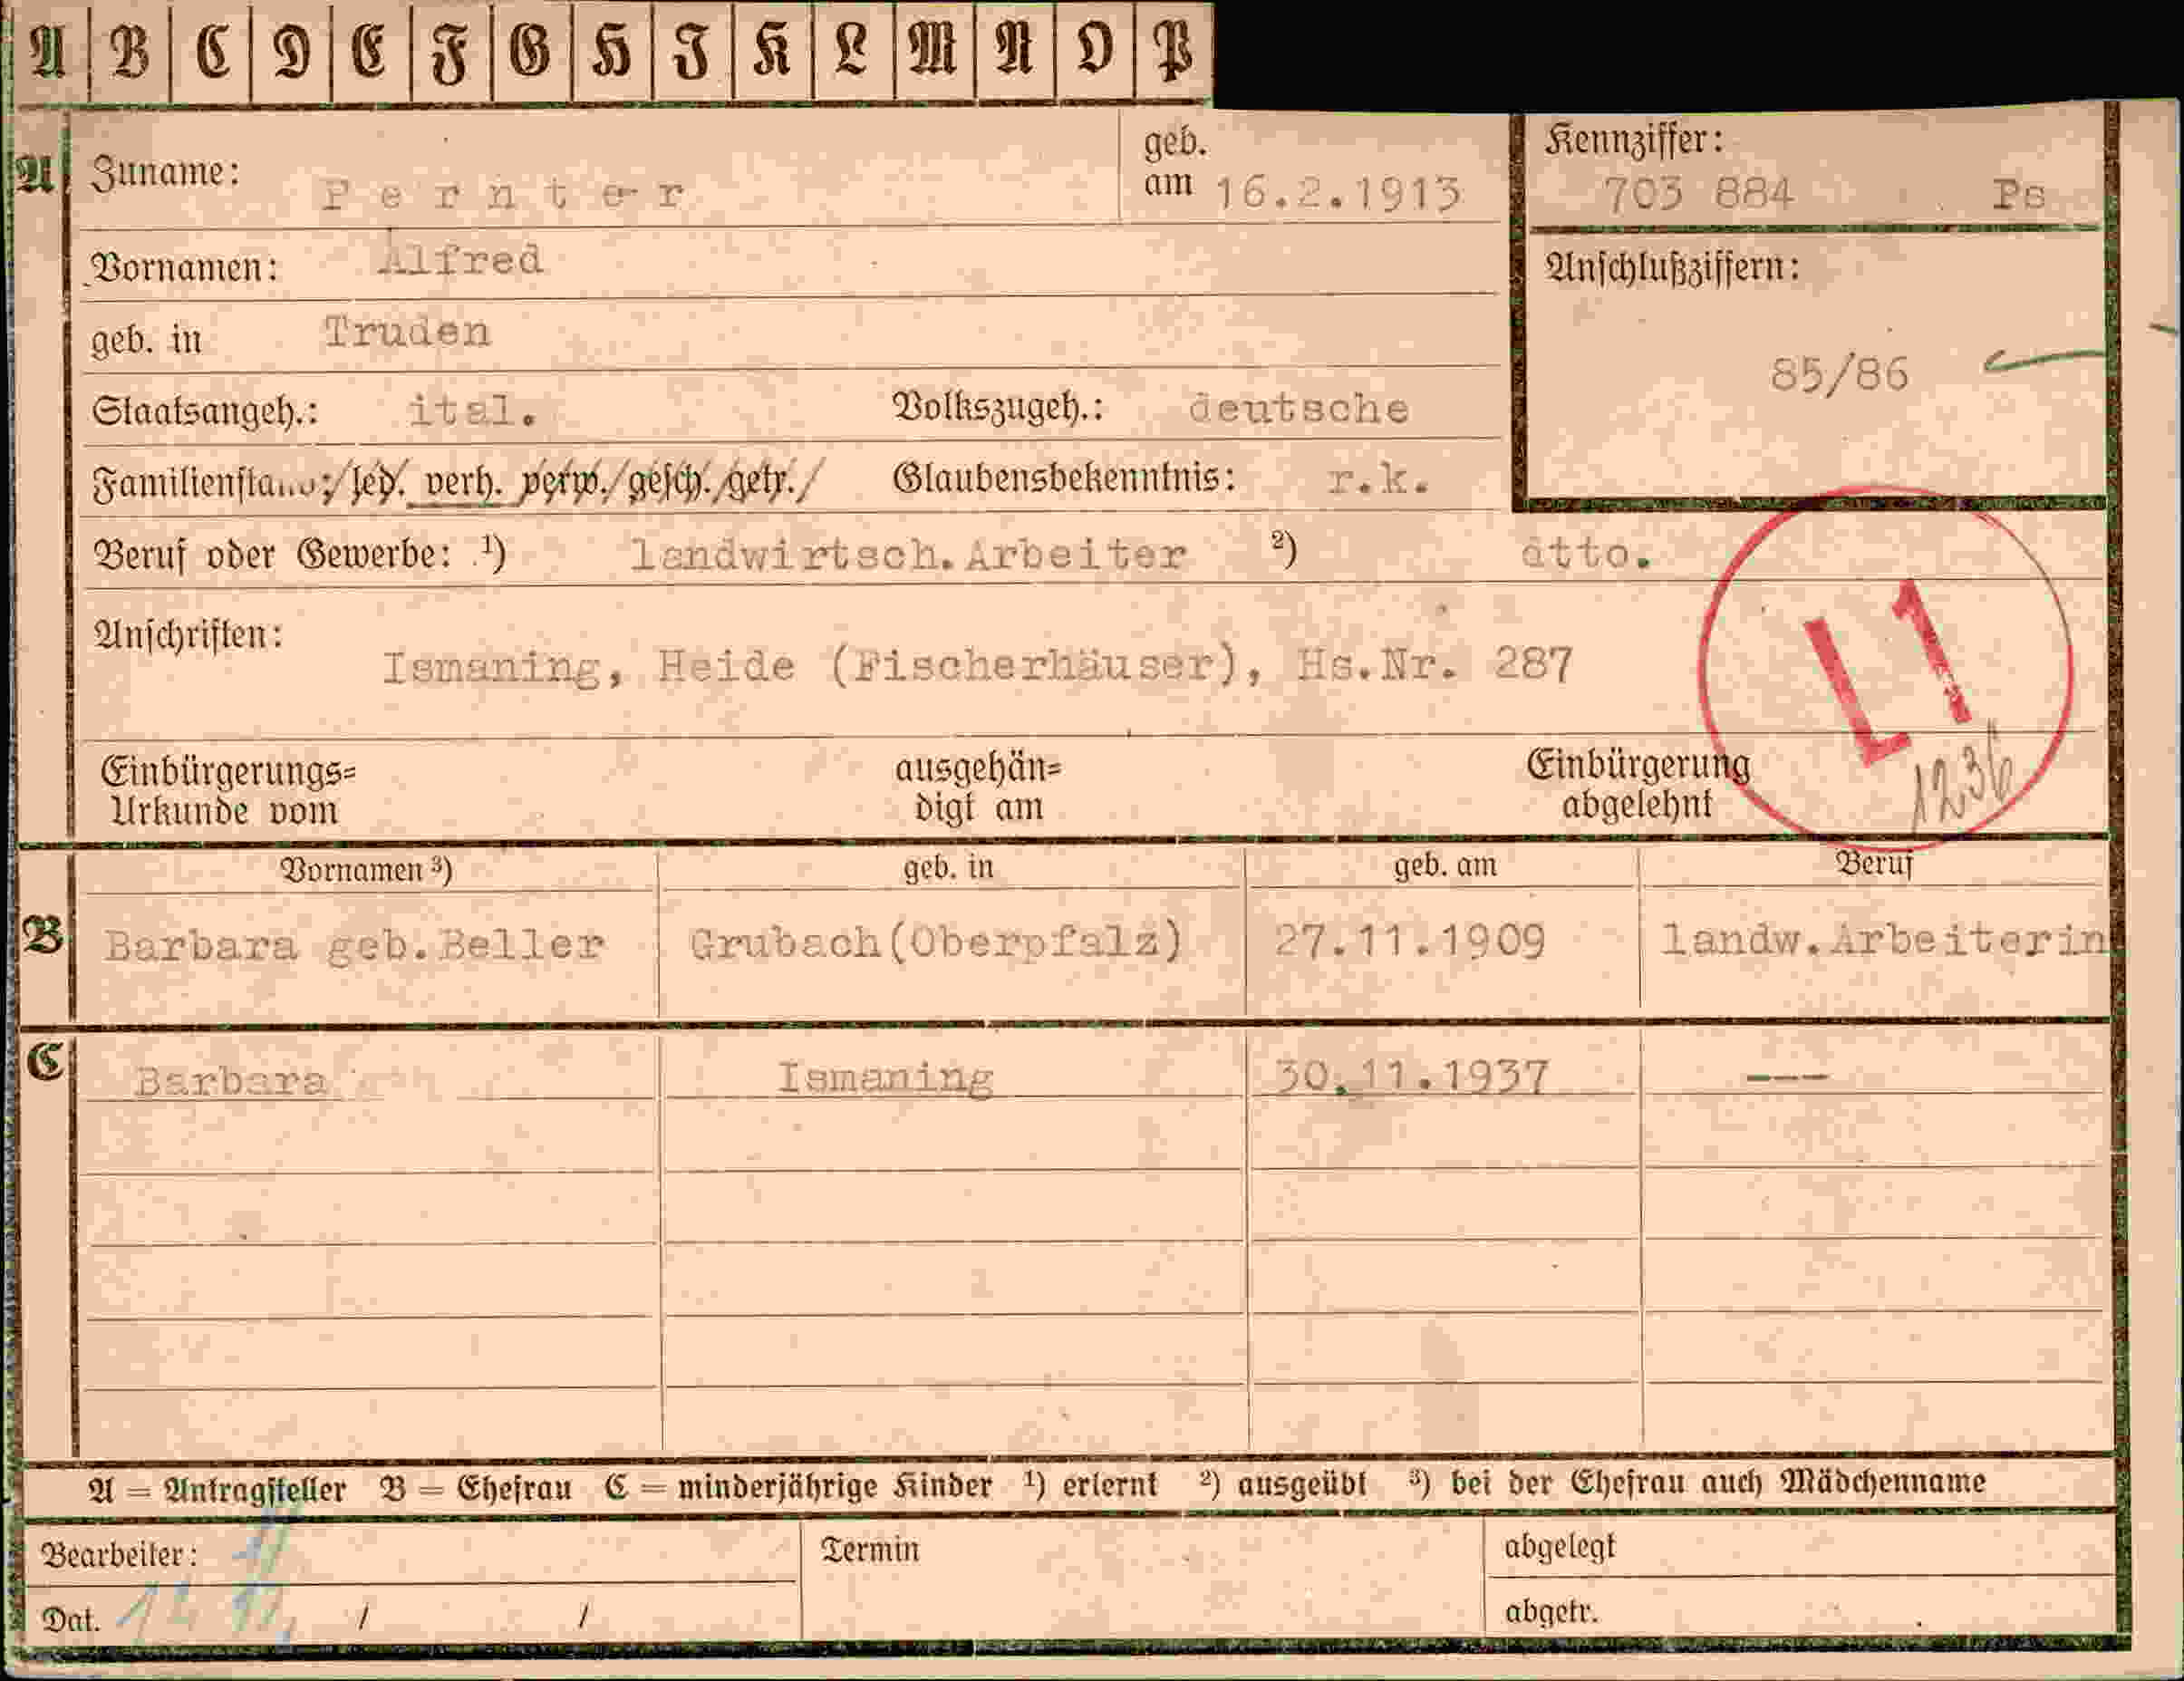 A B C D E F G H I K L M N O P
A Zuname: Pernter geb. am 16.2.1913 Kennziffer: 703 884 Ps
Vornamen: Alfred Anschlußziffern:
geb. in Truden 85/86
Staatsangeh.: ital. Volkszugeh.: deutsche
Familienstand: led. verh. verw. gesch. getr. Glaubensbekenntnis: r.k.
Beruf oder Gewerbe: ¹) landwirtsch.Arbeiter ²) dtto.
Anschriften: Ismaning, Heide (Fischerhäuser), Hs.Nr. 287
L 1
1236
Einbürgerungs= ausgehän= Einbürgerung
Urkunde vom digt am abgelehnt
Vornamen ³) geb. in geb. am Beruf
B Barbara geb.Beller Grubach(Oberpfalz) 27.11.1909 landw.Arbeiterin
C Barbara Ismaning 30.11.1937 ---
A = Antragsteller B = Ehefrau C = minderjährige Kinder ¹) erlernt ²) ausgeübt ³) bei der Ehefrau auch Mädchenname
Bearbeiter: Termin abgelegt
Dat. / / abgetr.